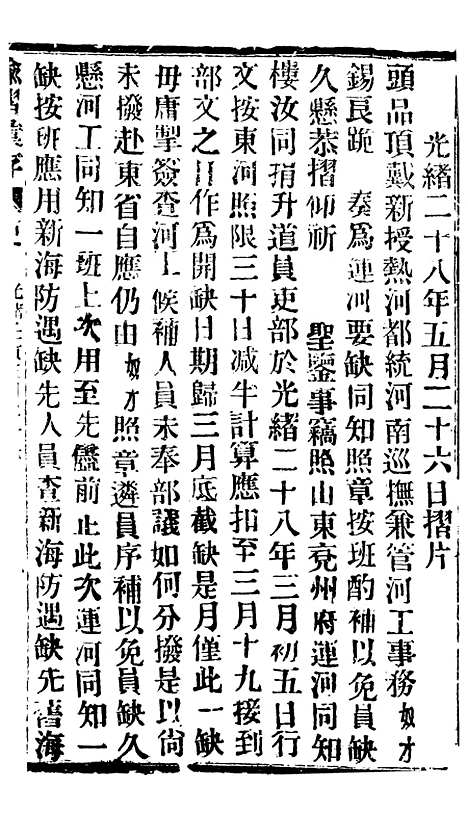 光緒二十八年五月二十六日摺片
頭品頂戴新授熱河都統河南巡撫兼管河工事務奴才
錫良跪 奏爲運河要缺同知照章按班酌補以免員缺
久懸恭摺仰祈 聖鑒事竊照山東兗州府運河同知
樓汝同捐升道員吏部於光緒二十八年三月初五日行
文按東河照限三十日減半計算應扣至三月十九接到
部文之日作爲開缺日期歸三月底截缺是月僅此一缺
毋庸掣簽查河工候補人員未奉部議如何分撥是以尚
未撥赴東省自應仍由奴才照章遴員序補以免員缺久
懸河工同知一班上次用至先儘前止此次運河同知一
缺按班應用新海防遇缺先人員查新海防遇缺先舊海